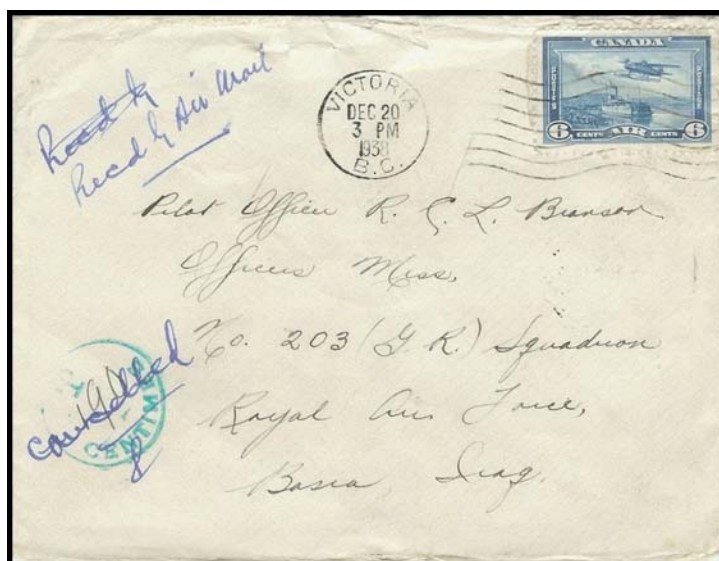 Recd by Air Mail
VICTORIA
DEC 20
3 PM
1938
B.C.
CANADA
POSTES POSTAGE
6 CENTS AIR CENTS 6
Pilot Officer R. C. L. Branson
Officers Mess,
No. 203 (G. R.) Squadron
Royal Air Force,
Basra, Iraq.
cancelled
CENTIMES